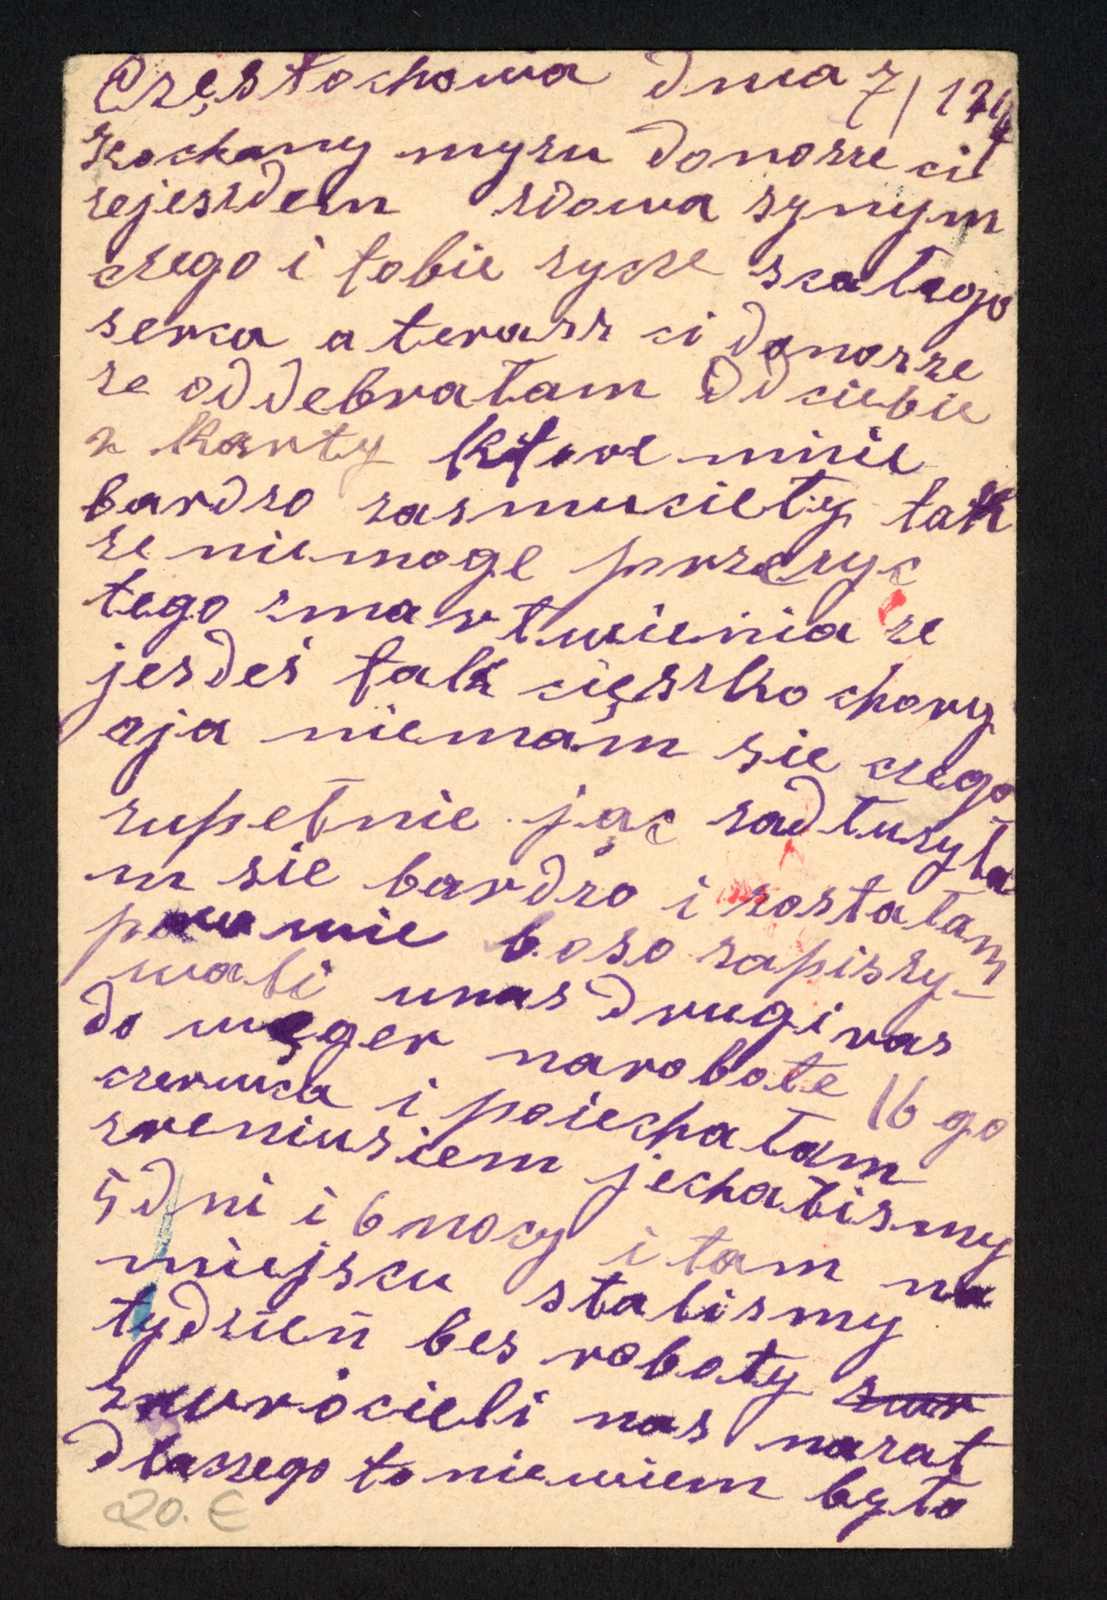 Częstochowa dnia 7/
Kochany myzu donosze ci
zejeszdem zdowa synym
czego i tobie zycze scałego
serca a terasz ci donosze
ze oddebrałam Od ciebie
2 karty ktore mnie
bardzo zasmucieły tak
ze niemoge przezyc
tego zmartwienia ze
jesdeś tak cięszko chory
aja niemam sie czego
zupełnie jąc zadłuzyła
m sie bardzo i zostałam
boso zapiszy-
wali unas drugi ras
do węger narobote 16 go
czerwca i poiechałam
zreniusiem jechaliśmy
5 dni i 6 nocy i tam na
miejscu staliśmy
tydzień bes roboty
zwrócieli nas nazat
dlaszego to niewiem było
20. €